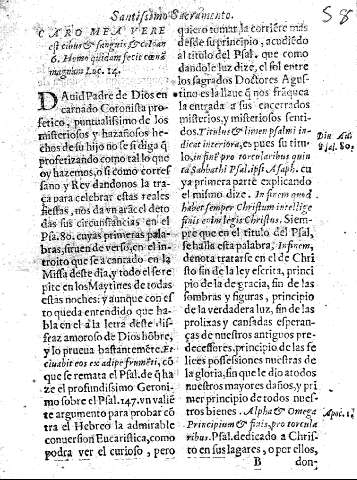 Santissimo Sacramento.
58
CARO MEA VERE
est cibus & sanguis &c. Ioan
6. Homo quidam fecit cœnã
magnam Luc. 14.
DAuid Padre de Dios en
carnado Coronista pro-
fetico, puntualissimo de los
misteriosos y hazañosos he-
chos de su hijo no se si diga q̃
profetizando como tal lo que
oy hazemos, o si como corre
sano y Rey dandonos la tra-
ça para celebrar estas reales
fiestas, nos da vn arãcel deto
das sus circunstancias en el
Psa. 80. cuyas primeras pala-
bras, siruen de verso, en el in-
troito que se a cantado en la
Missa deste dia, y todo el se re
pite en los Maytines de todas
estas noches: y aunque con es
to queda entendido que ha-
bla en el à la letra deste dis-
fraz amoroso de Dios hõbre,
y lo prueua bastantemẽte. Et
ciuabit eos ex adipe frumẽti. cõ
que se remata el Psal. de q̃ ha
ze el profundissimo Geroni-
mo sobre el Psal. 147. vn valiẽ
te argumento para probar cõ
tra el Hebreo la admirable
conuersion Eucaristica, como
podra ver el curioso, pero
quiero tomar la corriẽte mas
desde su principio, acudiẽdo
al titulo del Psal. que como
dandole luz dize, el sol entre
los sagrados Doctores Agus-
tino es la llaue q̃ nos frãquea
la entrada a sus encerrados
misterios, y misteriosos senti-
dos. Titulus & limen psalmi in
dicat interiora, es pues su titu-
lo, in finẽ pro torcularibus quin
ta Sabbathi Psal. ipsi Asaph. cu
ya primera parte explicando
el mismo dize. In finem quod
habet semper Christum intellige
finis enim legis Christus. Siem-
pre que en el titulo del Psal.
se halla esta palabra, In finem,
denota tratarse en el de Chri
sto fin de la ley escrita, princi
pio de la de gracia, fin de las
sombras y figuras, principio
de la verdadera luz, fin de las
prolixas y cansadas esperan-
ças de nuestros antiguos pre-
decessores, principio de las fe
lices possessiones nuestras de
la gloria, fin que le dio atodos
nuestros mayores daños, y pri
mer principio de todos nues-
tros bienes. Alpha & Omega
Principium & finis, pro torcula
ribus. Psal. dedicado a Chris-
to en sus lagares, o por ellos,
Psal. 80.
Apoc. 1.
B
don-